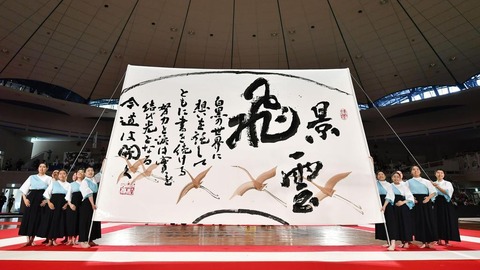 景雲
飛
白黒の世界に
想いを託して
ともに書き続ける
努力と涙は実を
結び光となる
今道は開く